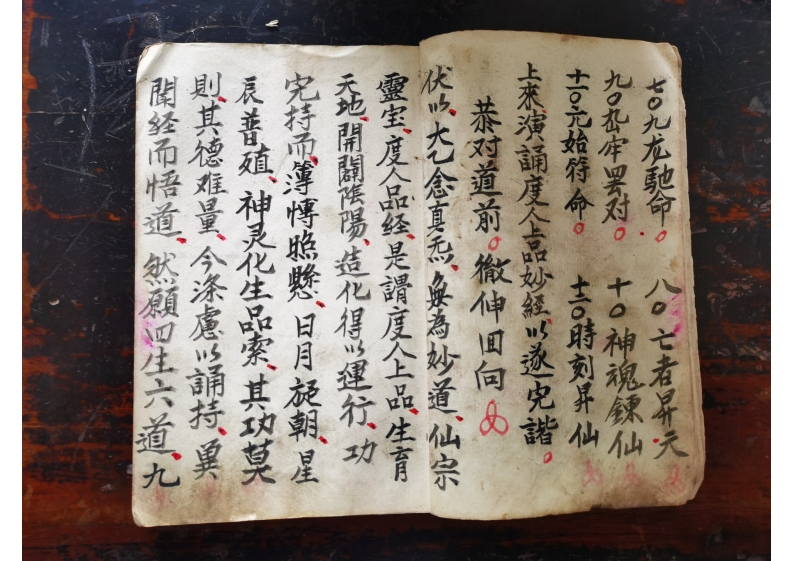 七〇九龙馳命。 八〇亡者昇天
九〇酆牢罢对。 十〇神魂鍊仙
十一〇元始符命。 十二〇時刻昇仙
上來演誦度人上品妙經、以遂完諧。
恭对道前。徹伸回向
伏以、大乙念真炁、無為妙道、仙宗
靈宝、度人品經、是謂度人上品、生育
天地、開闢陰陽、造化得以運行、功
完持而、簿愽照懸、日月旋朝、星
辰普殖、神灵化生品索、其功莫
則、其德难量、今涤慮以誦持、冀
聞経而悟道、然願四生六道、九